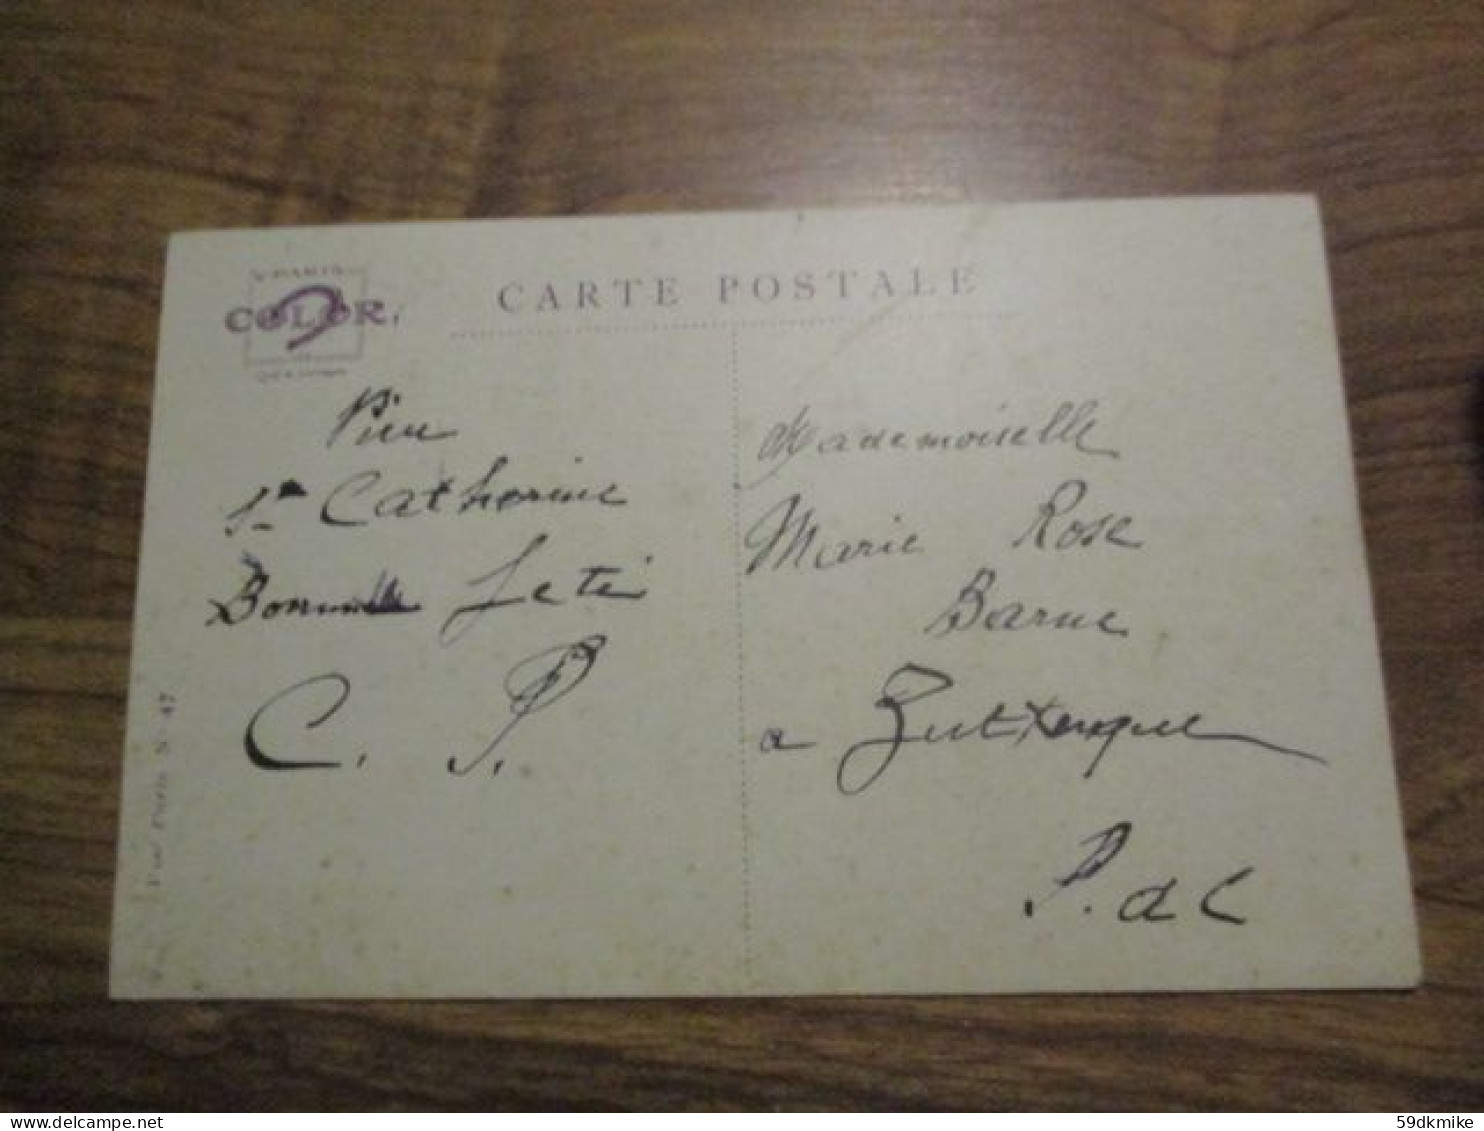 PARIS
COLOR
CARTE POSTALE
Vive
Ste Catherine
Bonne fete
C. P.
Mademoiselle
Marie Rose
Barne
a Zutkerque
P. d C
47
delcampe.net
59dkmike